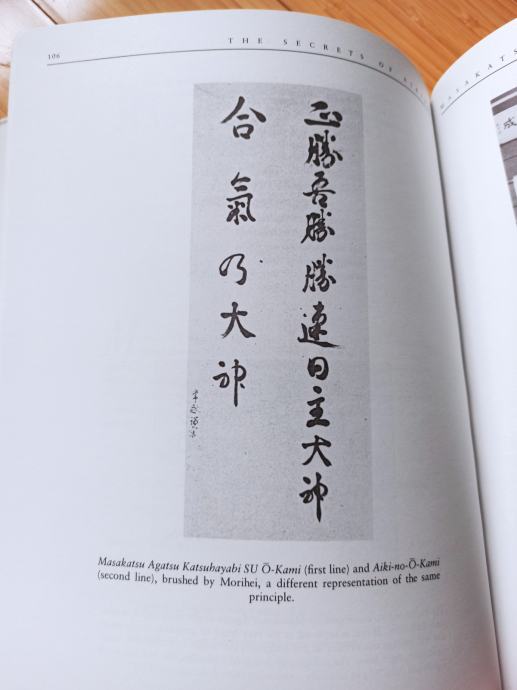 106
THE SECRETS OF AIKI
MASAKATS
正勝吾勝勝速日主大神
合氣乃大神
Masakatsu Agatsu Katsuhayabi SU Ō-Kami (first line) and Aiki-no-Ō-Kami
(second line), brushed by Morihei, a different representation of the same
principle.